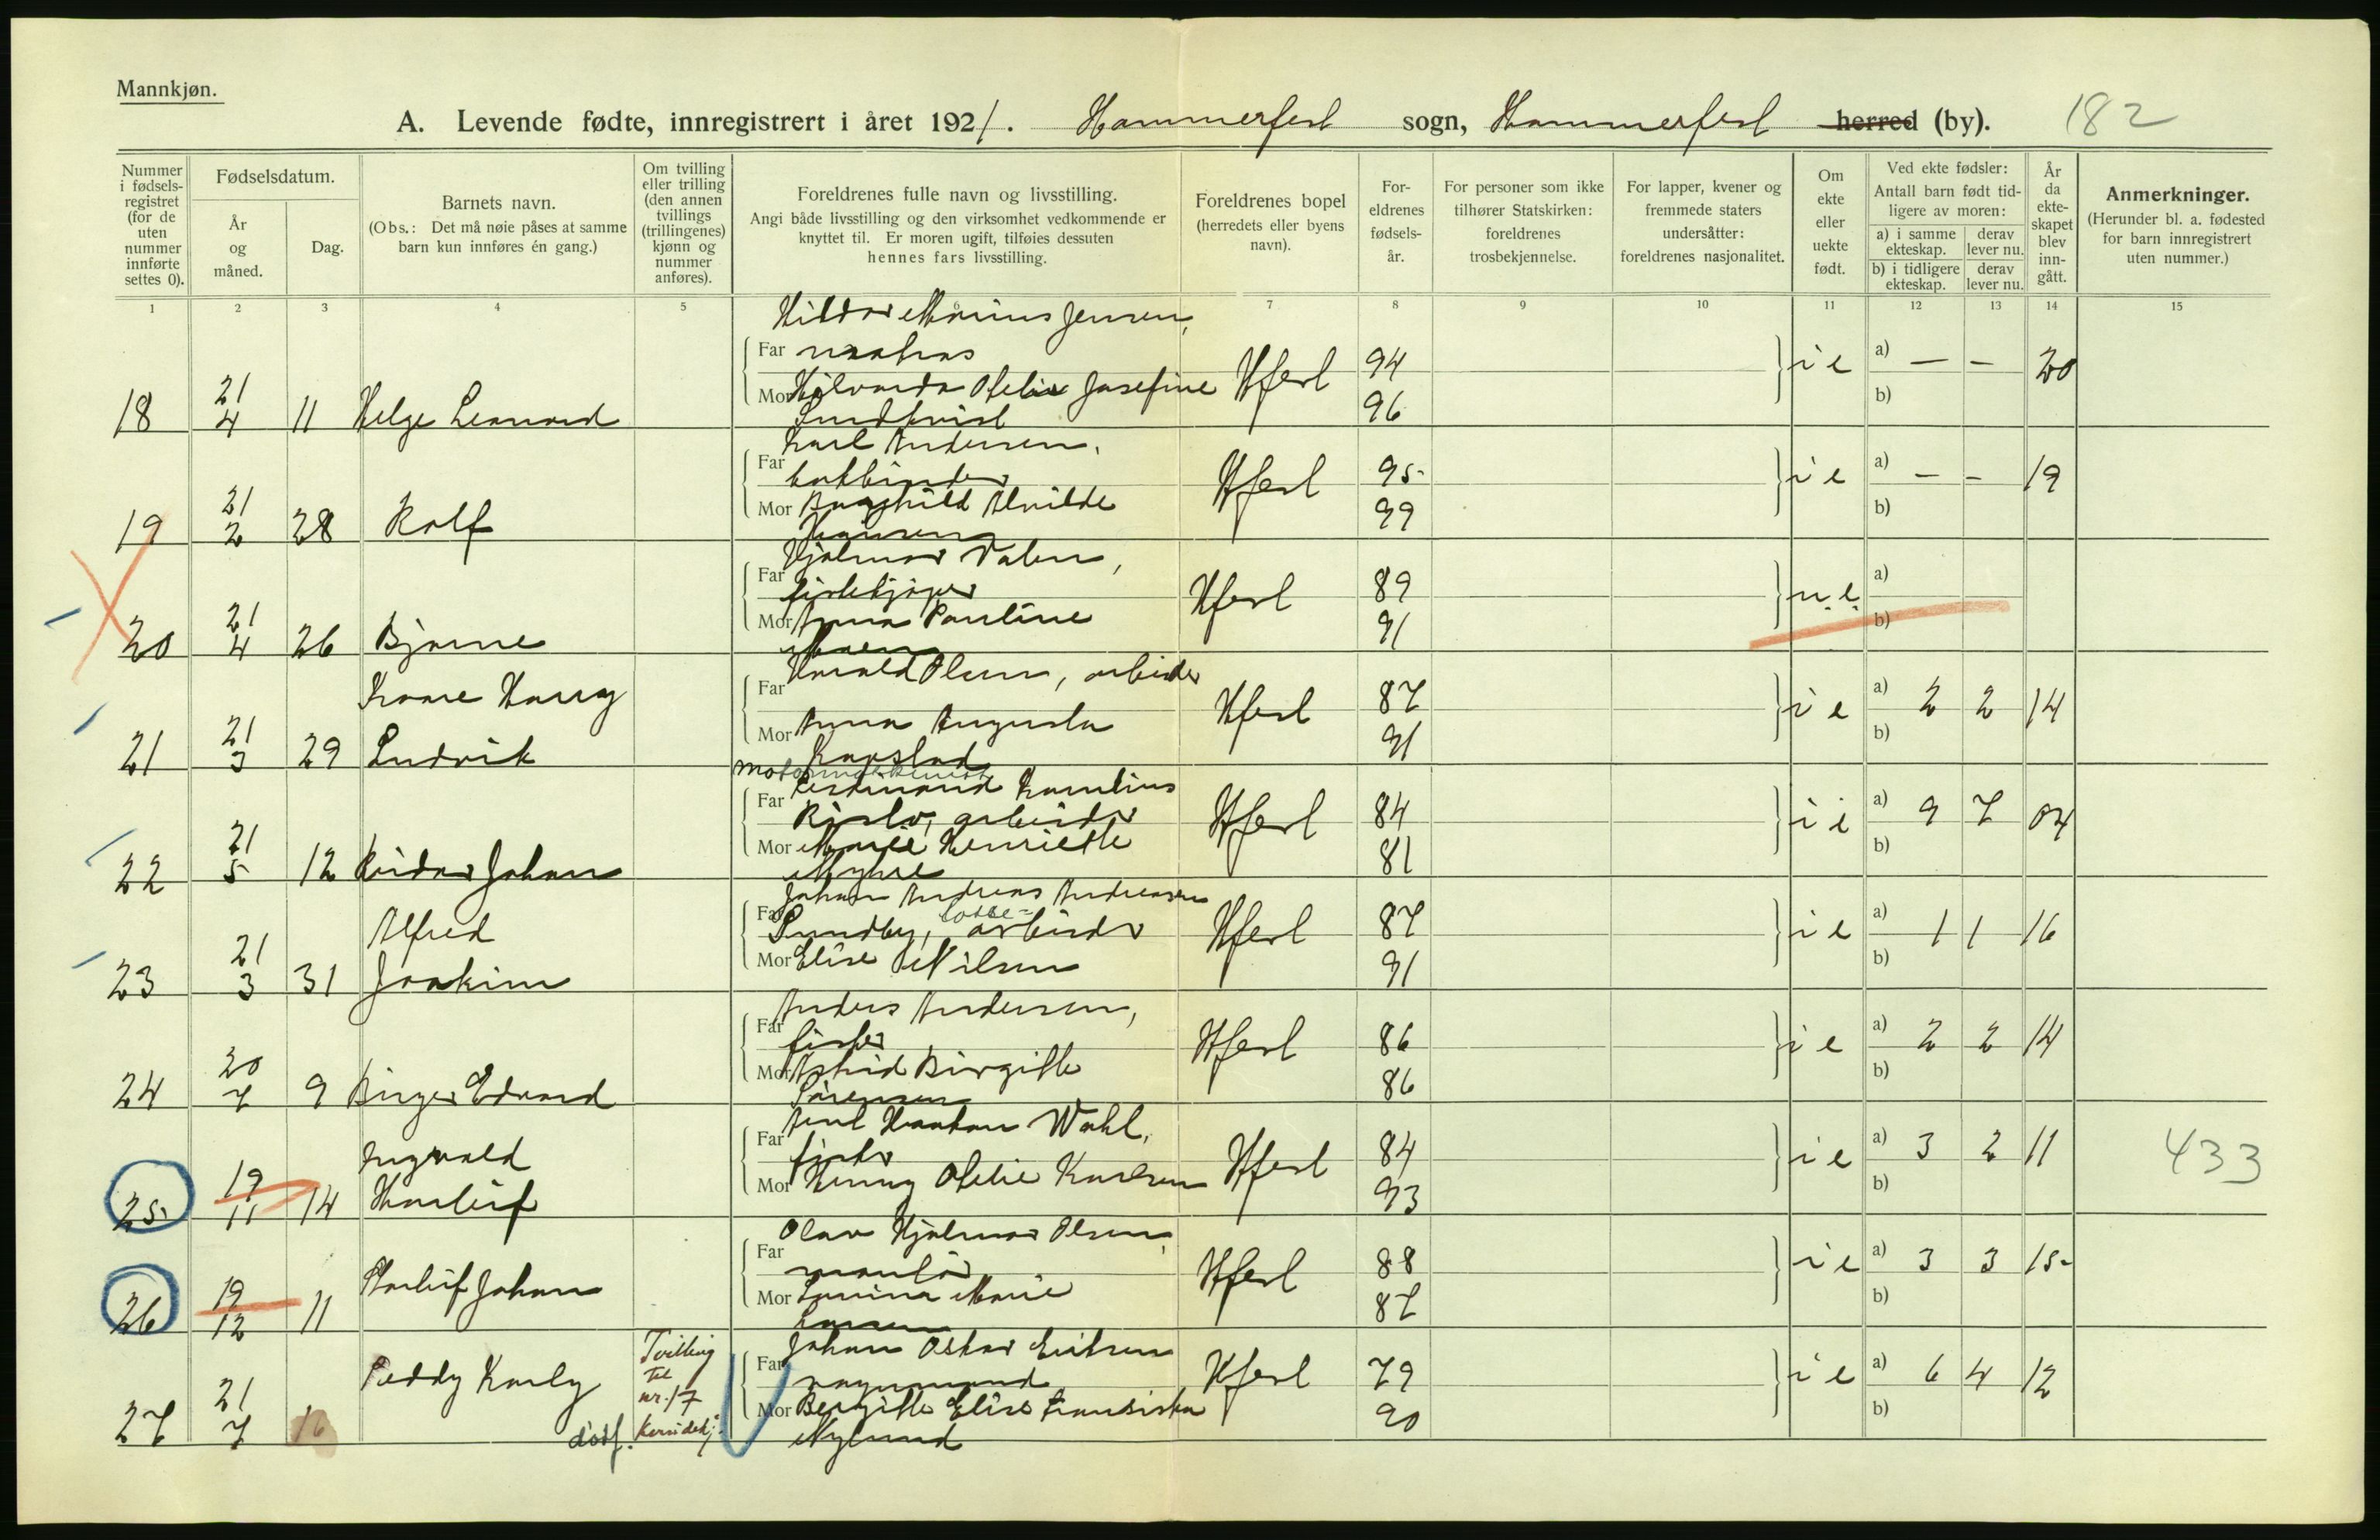 Mannkjøn.
A. Levende fødte, innregistrert i året 1921. Hammerfest sogn, Hammerfest herred (by). 182
Nummer i fødselsregistret (for de uten nummer innførte settes 0).
Fødselsdatum.
År og måned.
Dag.
Barnets navn.
(Obs.: Det må nøie påses at samme barn kun innføres én gang.)
Om tvilling eller trilling (den annen tvillings (trillingenes) kjønn og nummer anføres).
Foreldrenes fulle navn og livsstilling.
Angi både livsstilling og den virksomhet vedkommende er knyttet til. Er moren ugift, tilføies dessuten hennes fars livsstilling.
Foreldrenes bopel
(herredets eller byens navn).
Foreldrenes fødselsår.
For personer som ikke tilhører Statskirken: foreldrenes trosbekjennelse.
For lapper, kvener og fremmede staters undersåtter: foreldrenes nasjonalitet.
Om ekte eller uekte født.
Ved ekte fødsler:
Antall barn født tidligere av moren:
a) i samme ekteskap. derav lever nu.
b) i tidligere ekteskap. derav lever nu.
År da ekteskapet blev inngått.
Anmerkninger.
(Herunder bl. a. fødested for barn innregistrert uten nummer.)
1 2 3 4 5 6 7 8 9 10 11 12 13 14 15
Marius Jensen,
Far matros Hfest 94 i e a) — — 20
Mor Ofelia Josefine 96 b)
Lindkvist
18 21/4 11 Helge Leonard
Karl Andersen,
Far bokbinder Hfest 95 i e a) — — 19
Mor Ragnhild Alvilde 99 b)
Hansen
19 21/2 28 Rolf
Hjalmar Dalen,
Far fiskekjøper Hfest 89 u e a)
Mor Anna Pauline 91 b)
Moen
20 21/4 26 Bjarne
Far Harald Olsen, arbeider Hfest 87 i e a) 2 2 14
Mor Anna Augusta 91 b)
Kaare Harry
21 21/3 29 Ludvik
Far Ferdinand Kornelius Hfest 84 i e a) 9 7 04
arbeider
Mor Marie Henriette 81 b)
Myhre
22 21/5 12 Reidar Johan
Johan Andreas Andreassen
Far Sundby, losse= arbeider Hfest 87 i e a) 1 1 16
Mor Elise Nilsen 91 b)
Alfred
23 21/3 31 Joakim
Anders Andersen,
Far fisker Hfest 86 i e a) 2 2 14
Mor Astrid Birgitte 86 b)
Sørensen
24 20/7 9 Birger Edvard
Axel Haakon Wahl,
Far fisker Hfest 84 i e a) 3 2 11 433
Mor Henny Ofelie Karlsen 93 b)
Ingvald
25 19/11 14 Harleif
Olav Hjalmar Olsen,
Far montør Hfest 88 i e a) 3 3 15
Mor Marie 87 b)
Larsen
26 19/12 11 Thorleif Johan
Johan Oskar Eriksen
Far vognmand Hfest 79 i e a) 6 4 12
Mor Bergitte Elise Fransiska 90 b)
Nylund
27 21/7 16 Peddy Karly død f.
Tvilling til nr. 17 kvindekj.